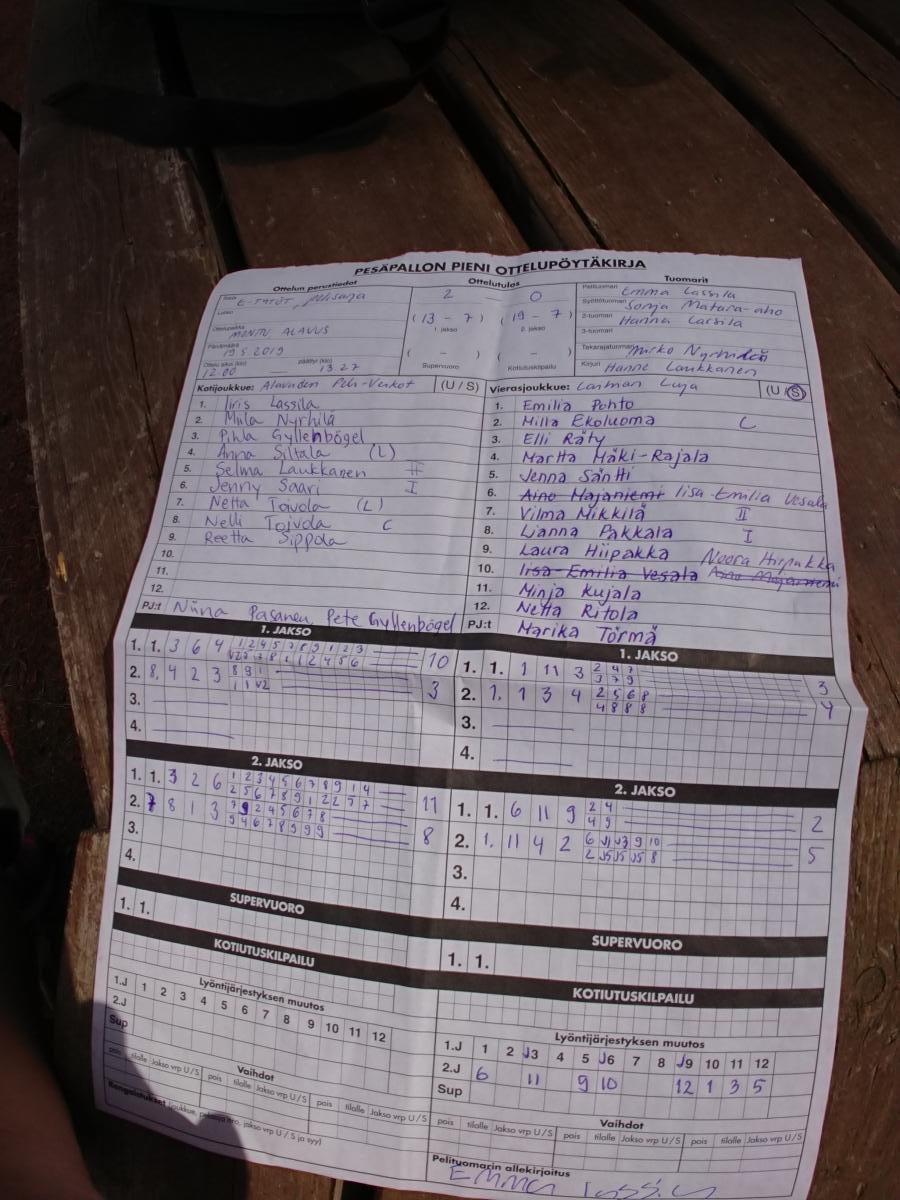 PESÄPALLON PIENI OTTELUPÖYTÄKIRJA
Ottelun perustiedot Ottelutulos Tuomarit
Sarja E-TYTÖT, pelisarja 2 - 0 Pelituomari Emma Lassila
Lohko Syöttötuomari Sonja Matara-aho
(13 - 7) (19 - 7) 2-tuomari Hanna Lassila
Ottelupaikka MONTU ALAVUS 1. jakso 2. jakso 3-tuomari
Päivämäärä 19.5.2019 Takarajatuomari Mirko
Ottelu alkoi (klo) 12.00 päättyi (klo) 13.27 ( - ) ( - ) Kirjuri Hanne Laukkanen
Supervuoro Kotiutuskilpailu
Kotijoukkue: Alavuden Peli-Veikot (U / S)
1. Iiris Lassila
2. Miila Nyrhilä
3. Pihla Gyllenbögel
4. Anna Siltala (L)
5. Selma Laukkanen II
6. Jenny Saari I
7. Netta Toivola (L)
8. Nelli Toivola C
9. Reetta Sippola
10.
11.
12.
PJ:t Niina Pasanen, Pete Gyllenbögel
Vierasjoukkue: Luja (U / S)
1. Emilia Pohto
2. Milla Ekoluoma C
3. Elli Räty
4. Martta Mäki-Rajala
5. Jenna Säntti
6. Aino Majaniemi Iisa-Emilia Vesala
7. Vilma Mikkilä II
8. Lianna Pakkala I
9. Laura Hiipakka Noora Hiipakka
10. Iisa-Emilia Vesala Aino Majaniemi
11. Minja Kujala
12. Netta Ritola
PJ:t Marika Törmä
1. JAKSO
1. 1. 3 6 4 1 2 4 5 7 8 9 1 2 3 10
2. 8. 4 2 3 8 9 1 3
3.
4.
1. JAKSO
1. 1. 1 11 3 2 4 7 3
3 7 9
2. 1. 1 3 4 2 5 6 8 4
4 8 8 8
3.
4.
2. JAKSO
1. 1. 3 2 6 1 2 3 4 5 6 7 8 9 1 4 11
2 5 6 7 8 9 1 2 2 7 7
2. 7 8 1 3 7 9 2 4 5 6 7 8 8
9 4 6 7 8 9 9 9
3.
4.
2. JAKSO
1. 1. 6 11 9 2 4 2
4 9
2. 1. 11 4 2 6 J1 J3 9 10 5
2 J5 J5 J5 8
3.
4.
SUPERVUORO
1. 1.
SUPERVUORO
1. 1.
KOTIUTUSKILPAILU
KOTIUTUSKILPAILU
Lyöntijärjestyksen muutos
1.J 1 2 3 4 5 6 7 8 9 10 11 12
2.J
Sup
Vaihdot
pois tilalle Jakso vrp U / S pois tilalle Jakso vrp U / S pois tilalle Jakso vrp U / S
Rangaistukset (joukkue, pelaaja nro, jakso vrp U / S ja syy)
Lyöntijärjestyksen muutos
1.J 1 2 J3 4 5 J6 7 8 J9 10 11 12
2.J 6 11 9 10 12 1 3 5
Sup
Vaihdot
pois tilalle Jakso vrp U / S pois tilalle Jakso vrp U / S pois tilalle Jakso vrp U / S
Pelituomarin allekirjoitus
Emma